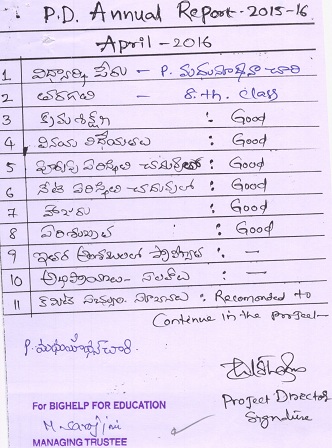 P.D. Annual Report-2015-16
April-2016
1 విద్యార్థి పేరు - P. మధుసూధనా చారి
2 తరగతి - 8.th. class
3 క్రమశిక్షణ : Good
4 వినయ విధేయతలు : Good
5 పూర్వపు పరిస్థితి చదువులో : Good
6 నేటి పరిస్థితి చదువులో : Good
7 హాజరు : Good
8 పరిశుభ్రత : Good
9 ఇతర అంశములలో : -
10 అభిప్రాయాలు- సలహాలు : -
11 కమిటి : Recomended to
Continue in the project-
P.
Project Director
Signature
For BIGHELP FOR EDUCATION
M. Sarojini
MANAGING TRUSTEE